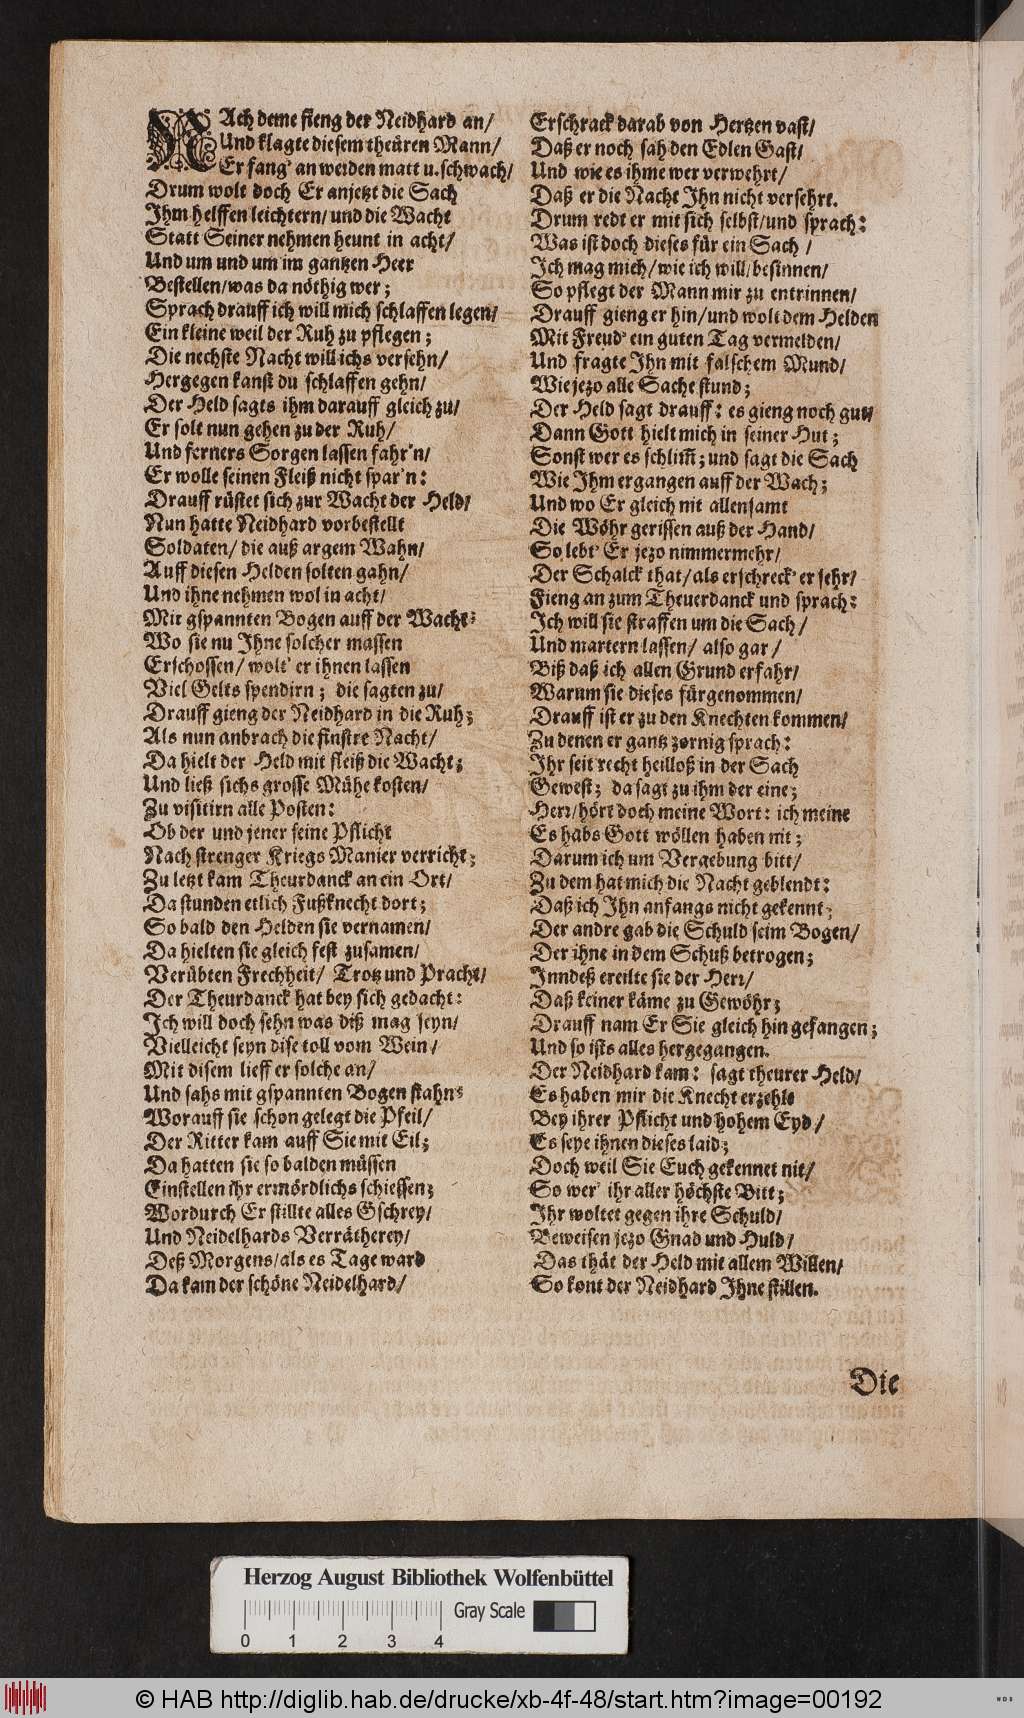 NAch deme fieng der Neidhard an/
Und klagte diesem theüren Mann/
Er fang' an werden matt u. schwach/
Drum wolt doch Er anjetzt die Sach
Ihm helffen leichtern/ und die Wacht
Statt Seiner nehmen heunt in acht/
Und um und um im gantzen Heer
Bestellen/ was da nöthig wer;
Sprach drauff ich will mich schlaffen legen/
Ein kleine weil der Ruh zu pflegen;
Die nechste Nacht will ichs versehn/
Hergegen kanst du schlaffen gehn/
Der Held sagts ihm darauff gleich zu/
Er solt nun gehen zu der Ruh/
Und ferners Sorgen lassen fahr'n/
Er wolle seinen Fleiß nicht spar'n:
Drauff rüstet sich zur Wacht der Held/
Nun hatte Neidhard vorbestellt
Soldaten/ die auß argem Wahn/
Auff diesen Helden solten gahn/
Und ihne nehmen wol in acht/
Mit gspannten Bogen auff der Wacht:
Wo sie nu Ihne solcher massen
Erschossen/ wolt' er ihnen lassen
Viel Gelts spendirn; die sagten zu/
Drauff gieng der Neidhard in die Ruh;
Als nun anbrach die finstre Nacht/
Da hielt der Held mit fleiß die Wacht;
Und ließ sichs grosse Mühe kosten/
Zu visitirn alle Posten:
Ob der und jener seine Pflicht
Nach strenger Kriegs Manier verricht;
Zu letzt kam Theurdanck an ein Ort/
Da stunden etlich Fußknecht dort;
So bald den Helden sie vernamen/
Da hielten sie gleich fest zusamen/
Verübten Frechheit/ Trotz und Pracht/
Der Theurdanck hat bey sich gedacht:
Ich will doch sehn was diß mag seyn/
Vielleicht seyn dise toll vom Wein/
Mit disem lieff er solche an/
Und sahs mit gspannten Bogen stahn:
Worauff sie schon gelegt die Pfeil/
Der Ritter kam auff Sie mit Eil;
Da hatten sie so balden müssen
Einstellen ihr ermördlichs schiessen;
Wordurch Er stillte alles Gschrey/
Und Neidelhards Verrätherey/
Deß Morgens/ als es Tage ward
Da kam der schöne Neidelhard/
Erschrack darab von Hertzen vast/
Daß er noch sah den Edlen Gast/
Und wie es ihme wer verwehrt/
Daß er die Nacht Ihn nicht versehrt.
Drum redt er mit sich selbst/ und sprach:
Was ist doch dieses für ein Sach/
Ich mag mich/ wie ich will/ besinnen/
So pflegt der Mann mir zu entrinnen/
Drauff gieng er hin/ und wolt dem Helden
Mit Freud' ein guten Tag vermelden/
Und fragte Ihn mit falschem Mund/
Wie jezo alle Sache stund;
Der Held sagt drauff: es gieng noch gut/
Dann Gott hielt mich in seiner Hut;
Sonst wer es schlim̃; und sagt die Sach
Wie Ihm ergangen auff der Wach;
Und wo Er gleich nit allensamt
Die Wöhr gerissen auß der Hand/
So lebt' Er jezo nimmermehr/
Der Schalck that/ als erschreck' er sehr/
Fieng an zum Theuerdanck und sprach:
Ich will sie straffen um die Sach/
Und martern lassen/ also gar/
Biß daß ich allen Grund erfahr/
Warum sie dieses fürgenommen/
Drauff ist er zu den Knechten kommen/
Zu denen er gantz zornig sprach:
Ihr seit recht heilloß in der Sach
Gewest; da sagt zu ihm der eine;
Herr/ hört doch meine Wort: ich meine
Es habs Gott wöllen haben nit;
Darum ich um Vergebung bitt/
Zu dem hat mich die Nacht geblendt:
Daß ich Ihn anfangs nicht gekennt;
Der andre gab die Schuld seim Bogen/
Der ihne in dem Schuß betrogen;
Inndeß ereilte sie der Herr/
Daß keiner käme zu Gewöhr;
Drauff nam Er Sie gleich hin gefangen;
Und so ists alles hergegangen.
Der Neidhard kam: sagt theurer Held/
Es haben mir die Knecht erzehlt
Bey ihrer Pflicht und hohem Eyd/
Es seye ihnen dieses laid;
Doch weil Sie Euch gekennet nit/
So wer' ihr aller höchste Bitt;
Ihr woltet gegen ihre Schuld/
Beweisen jezo Gnad und Huld/
Das thät der Held mit allem Willen/
So kont der Neidhard Ihne stillen.
Die
Herzog August Bibliothek Wolfenbüttel
Gray Scale
0 1 2 3 4
© HAB http://diglib.hab.de/drucke/xb-4f-48/start.htm?image=00192